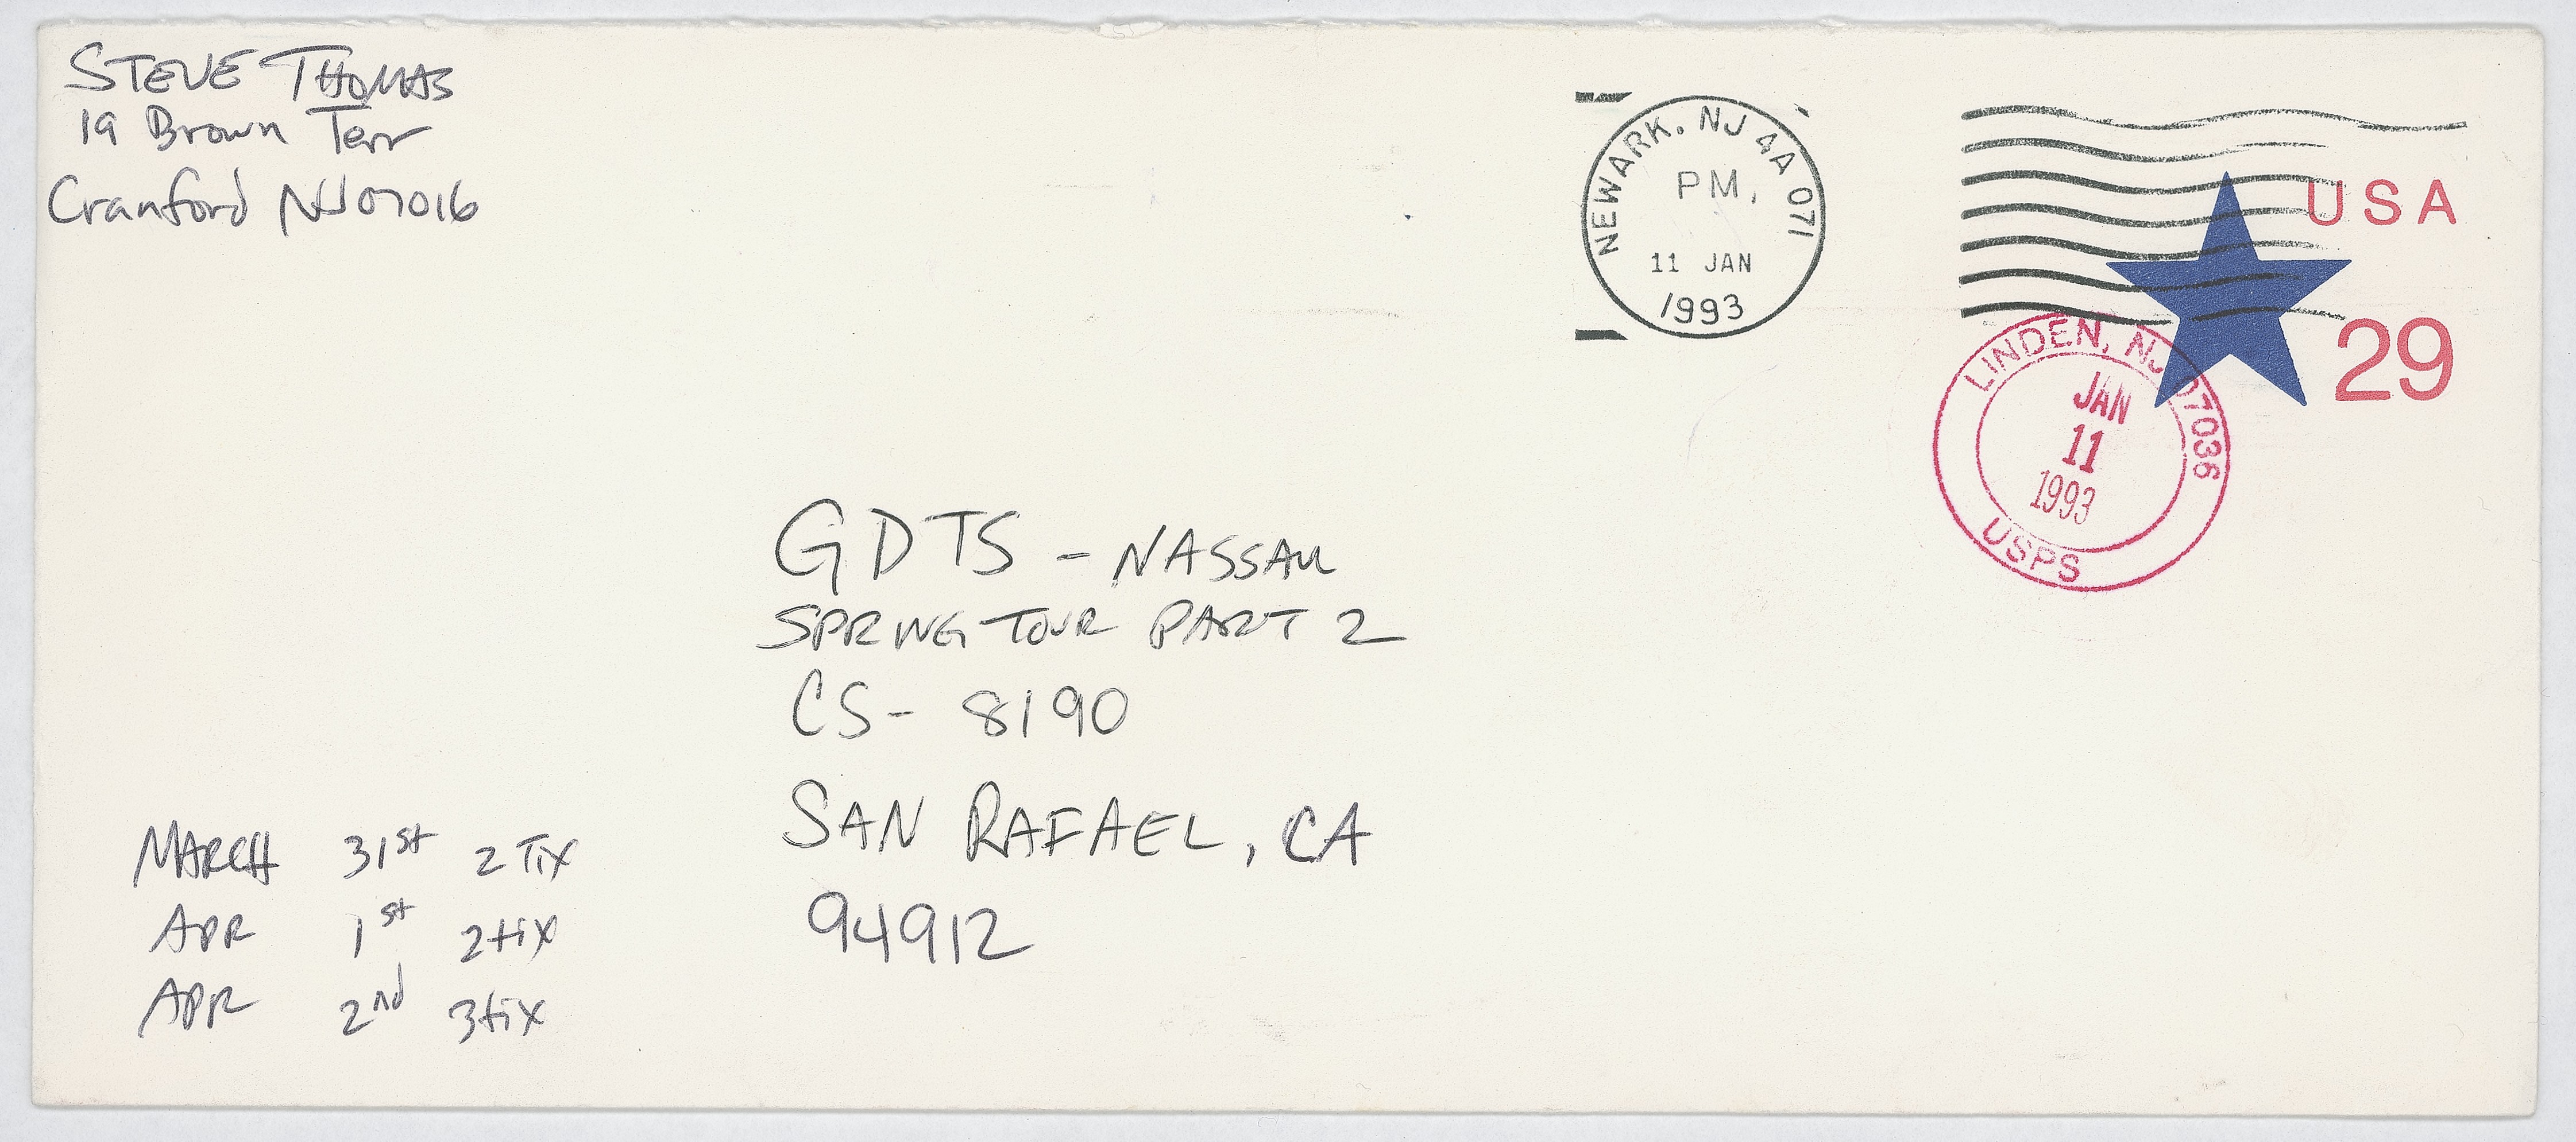 STEVE THOMAS
19 Brown Terr
Cranford NJ 07016
NEWARK, NJ 4A 071
PM,
11 JAN
1993
USA
29
LINDEN, NJ 07036
JAN
11
1993
USPS
GDTS - NASSAU
SPRING TOUR PART 2
CS- 8190
SAN RAFAEL, CA
94912
MARCH 31st 2 Tix
APR 1st 2 tix
APR 2nd 3 tix